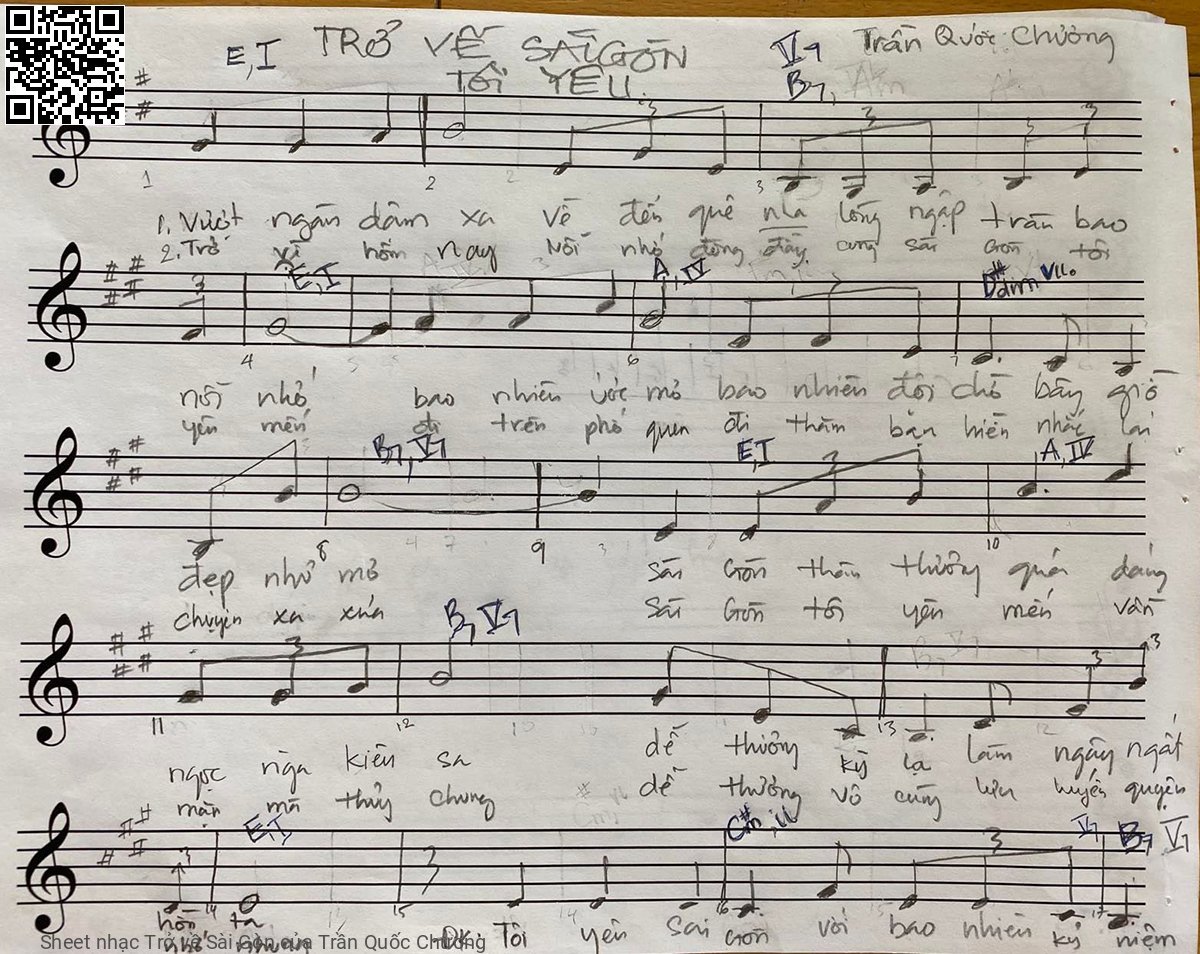 E,I TRỞ VỀ SÀI GÒN V7 Trần Quốc Chương
TÔI YÊU. B7,
1 2 3
1. Vượt ngàn dặm xa về đến quê nhà lòng ngập tràn bao
2. Trở về hôm nay nỗi nhớ đong đầy cùng Sài Gòn tôi
E,I A,IV D#dim VII°
4 5 6 7
nỗi nhớ bao nhiêu ước mơ bao nhiêu đợi chờ bây giờ
yêu mến đi trên phố quen đi thăm bạn hiền nhắc lại
B7,V7 E,I A,IV
8 9 10
đẹp như mơ Sài Gòn thân thương quá dáng
chuyện xa xưa Sài Gòn tôi yêu mến vẫn
B7 V7
11 12 13
ngọc ngà kiêu sa dễ thương kỳ lạ làm ngây ngất
mặn mà thủy chung dễ thương vô cùng lưu luyến quyện
E,I C#m, V7 B7 V7
14 15 16 17
hồn ta ĐK: Tôi yêu Sài Gòn với bao nhiêu kỷ niệm
Sheet nhạc Trở về Sài Gòn của Trần Quốc Chương